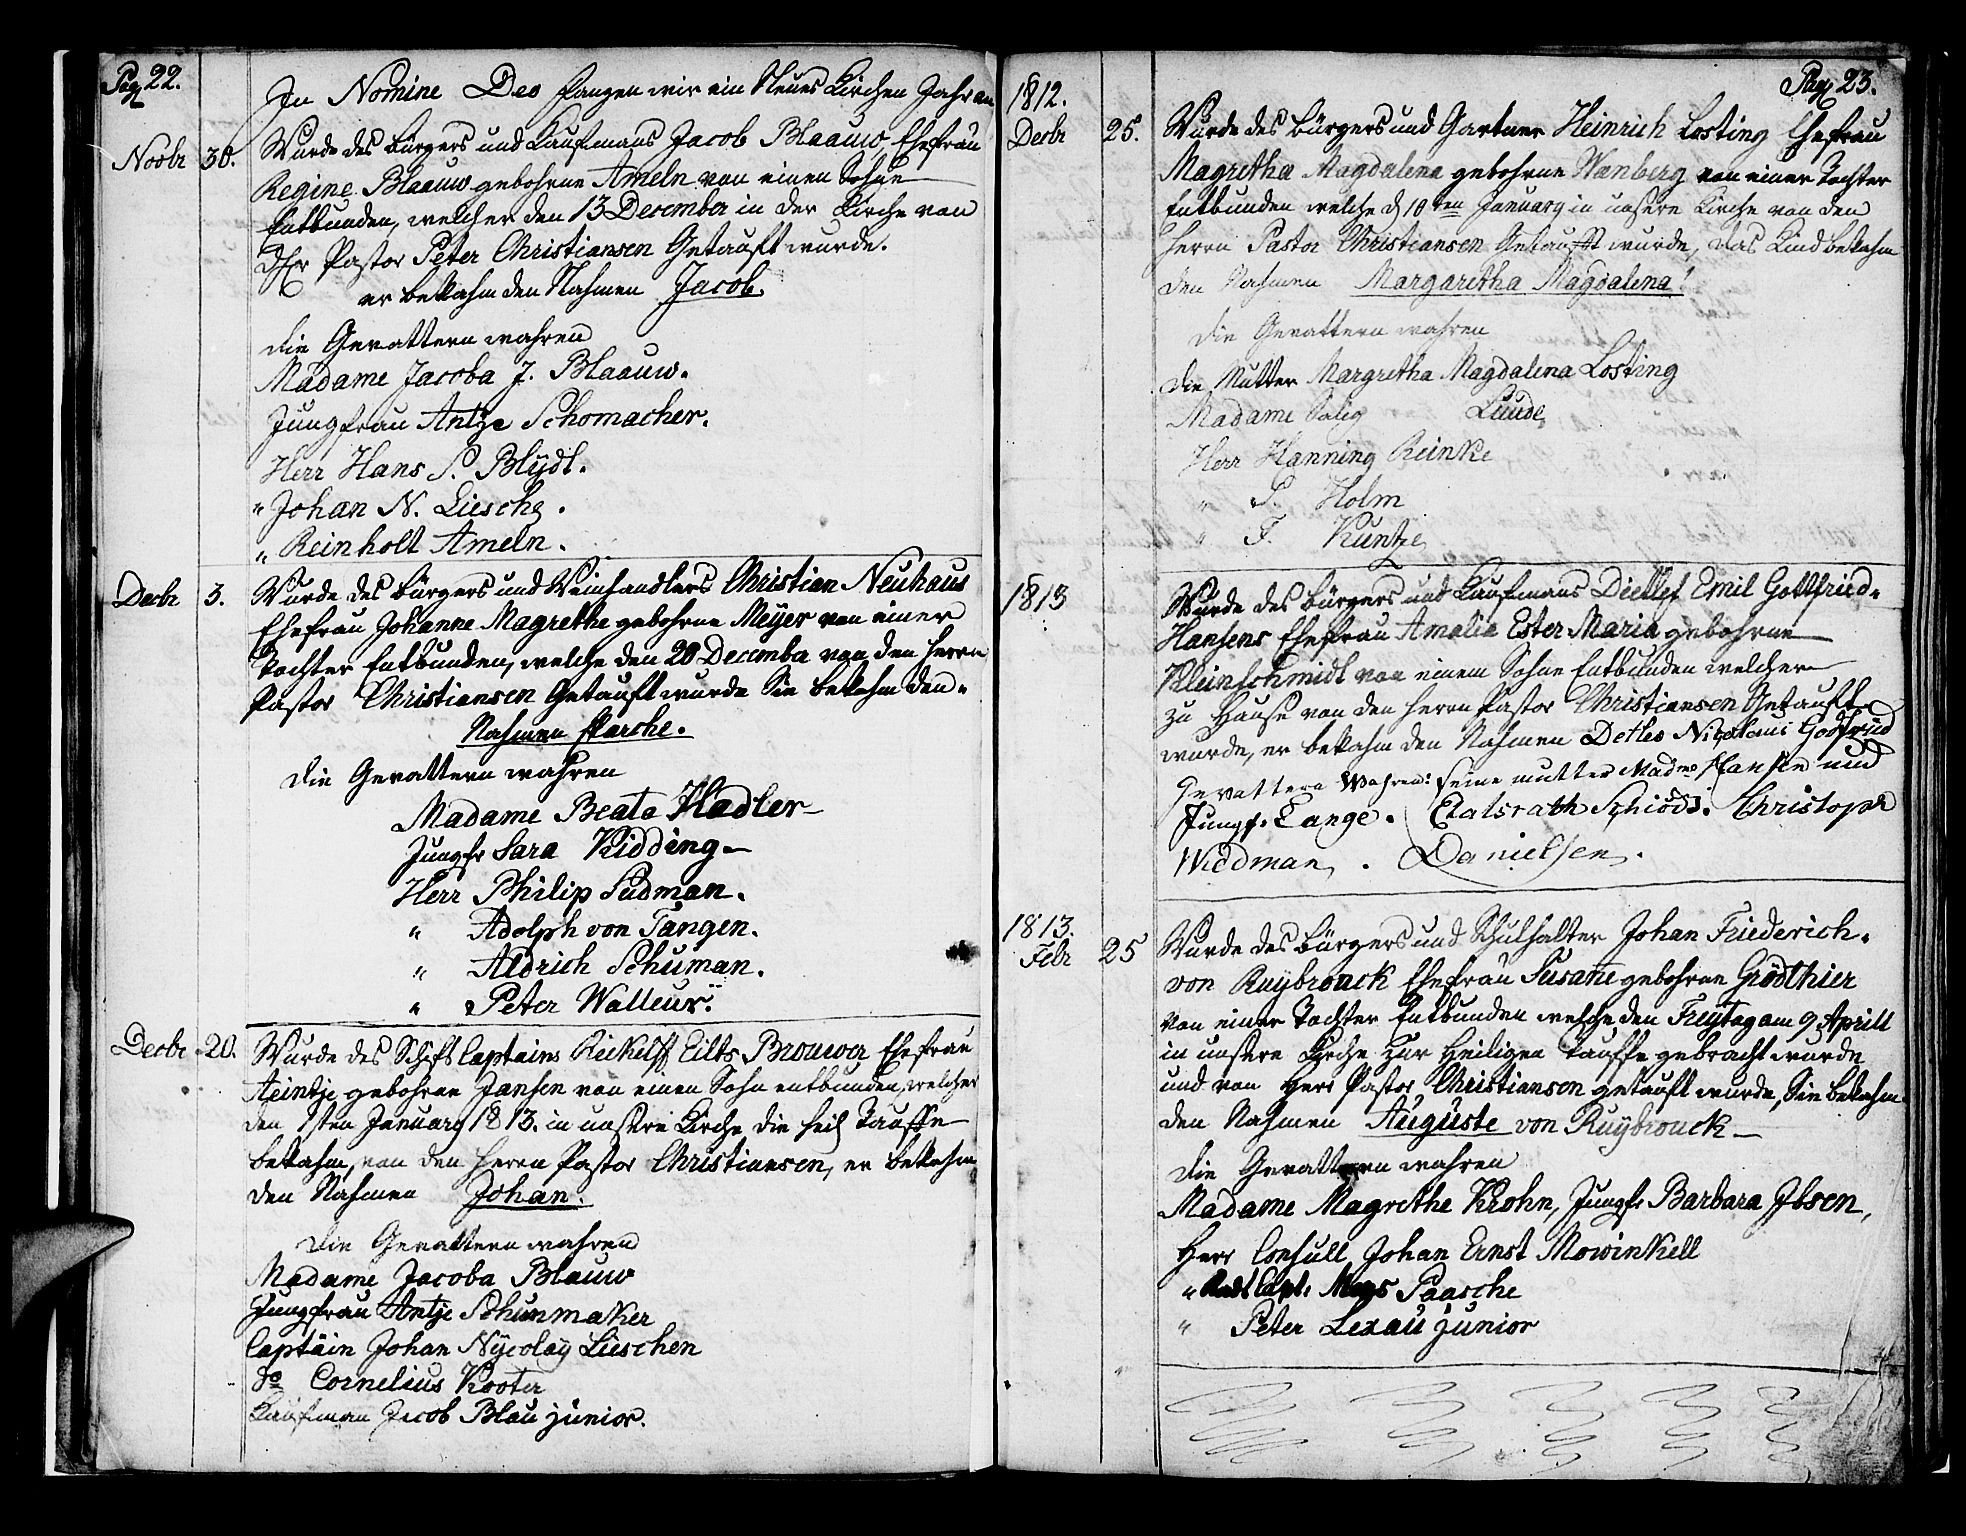 Pag 22.
In Nomine Deo fangen wir ein Neues Kirchen Jahr an
Novbr 30. Wurde des bürgers und Kaufmans Jacob Blaauw, Ehefrau
Regine Blaauw gebohrne Ameln von einen Sohne
Entbunden, welcher den 13 December in der Kirche von
Pastor Peter Christiansen Getauft wurde.
er bekahm den Nahmen Jacob.
die Gevattern wahren
Madame Jacoba J. Blaauw.
Jungfrau Antje Schomacher.
Herr Hans S. Blydt.
" Johan N. Liesche.
" Reinholt Ameln.
Decbr 3. Wurde des bürgers und Weinhandlers Christian Neuhaus
Ehefrau Johanne Magrethe gebohrne Meyer von einer
tochter Entbunden, welche den 20 Decembr von den Herrn
Pastor Christiansen Getauft wurde Sie bekahm den
Nahmen
die Gevattern wahren
Madame Beata Hadler
Jungfr Sara Kidding
Herr Philip Sudman.
" Adolph von Tangen.
" Aldrich Schuman.
" Peter Walleur.
Decbr 20. Wurde des Schifs Captains Rickelff Eilts Brouwer Ehefrau
Aeintje gebohrne Jansen von einen Sohn entbunden, welcher
den 1sten January 1813. in unsere Kirche die heil Tauffe
bekahm, von den Herrn Pastor Christiansen, er bekahm
den Nahmen Johan.
die Gevattern wahren
Madame Jacoba Blauw
Jungfrau Antje Schunmaker
Captäin Johan Nycolay Lieschen
do Cornelius Kooter
Kaufman Jacob Blau junior.
Pag 23.
1812.
Decbr 25. Wurde des bürgers und Gartner Heinrich Losting Ehefrau
Magretha Magdalena gebohrne Wanberg von einer Tochter
Entbunden welche d 10ten January in unsere Kirche von den
Herrn Pastor Christiansen Getauft wurde, das Kind bekahm
den Nahmen Margaretha Magdalena
die Gevattern wahren
die Mutter Margretha Magdalena Losting
Madame Salig Luude
Herr Hanning Reinke
" S. Holm
" F. Kuntze
1813 Wurde des bürgers und Kaufmans Dietlef Emil Gottfried
Hansens Ehefrau Amalia Ester Maria gebohrne
Kleinschmidt von einem Sohne Entbunden welcher
zu Hause von den Herrn Pastor Christiansen Getauft
wurde, er bekahm den Nahmen Detlev Nicolaus Godfried
Gevattern Wahren: seine mutter Madme Hansen und
Jungf. Lange. Etatsrath Schiödt. Christoph
Wiedman. Danielsen.
1813.
Febr 25 Wurde des bürgers und Schulhalter Johan Friederich
von Ruybrouck Ehefrau Susane gebohrne Grödthier
von einer Tochter Entbunden welche den Freytag am 9 Aprill
in unsere Kirche zur Heiligen tauffe gebracht wurde
und von Herr Pastor Christiansen getauft wurde, Sie bekahm
den Nahmen Auguste von Ruybrouck
die Gevattern wahren
Madame Magrethe Krohn, Jungfr Barbara Ibsen,
Herr Consull Johan Ernst Mowinkell
" Capt. Mogs Paasche
" Peter Lexau junior